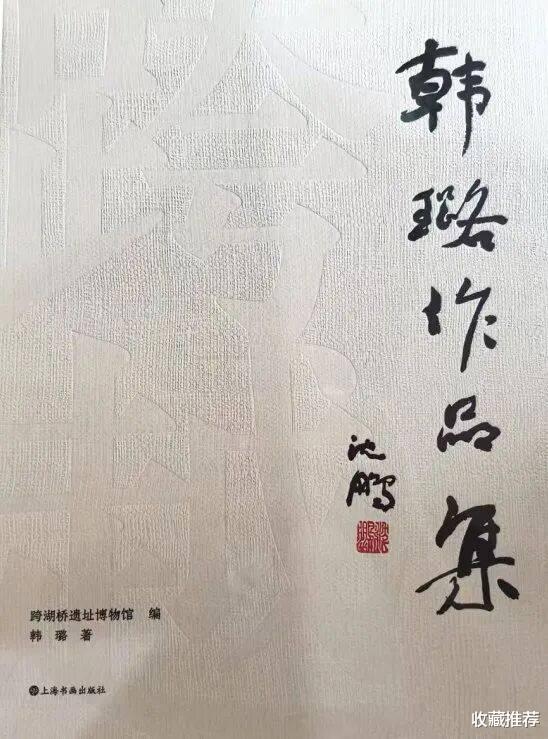 韩璐作品集
沈鹏
跨湖桥遗址博物馆 编
韩 璐 著
上海书画出版社
收藏推荐